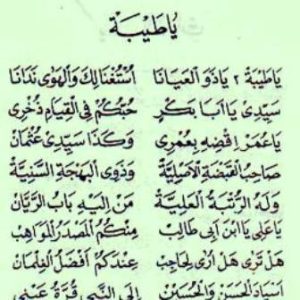 يَاطَيْبَة
يَاطَيْبَة ٢ يَاذَوَ الْعَيَانَا اسْتَغْنَالِكْ وَالْهَوٰى نَدَانَا
سَيِّدِى يَا اَبَا بَكَرٍ حُبُّكُمْ فِى الْقِيَامِ ذُخْرِى
يَاعُمَرْ اِقْضِهِ بِعُمْرِى وَكَذَا سَيِّدِى عُثْمَانْ
صَاحِبُ الْقَبْضَةِ الْاَصِلِيَّةْ وَذَوِى الْبَهْجَةِ السَّنِيَّةْ
وَلَهُ الرُّتْبَةُ الْعَلِيَّةْ مَنْ اِلَيْهِ بَابُ الرَّيَّانْ
يَاعَلِى يَاابْنَ اَبِى طَالِبْ مِنْكُمُ الْمَصْدَرُ الْمَوَاهِبْ
هَلْ تُرٰى هَلْ اُرٰى لِحَاجِبْ عِنْدَكُمْ اَفْضَلُ الْغِلْمَانْ
اَسْيَادِ الْحَسَنِ وَالْحُسَيْنِ اِلَى النَّبِى قُرَّةُ عَيْنِى